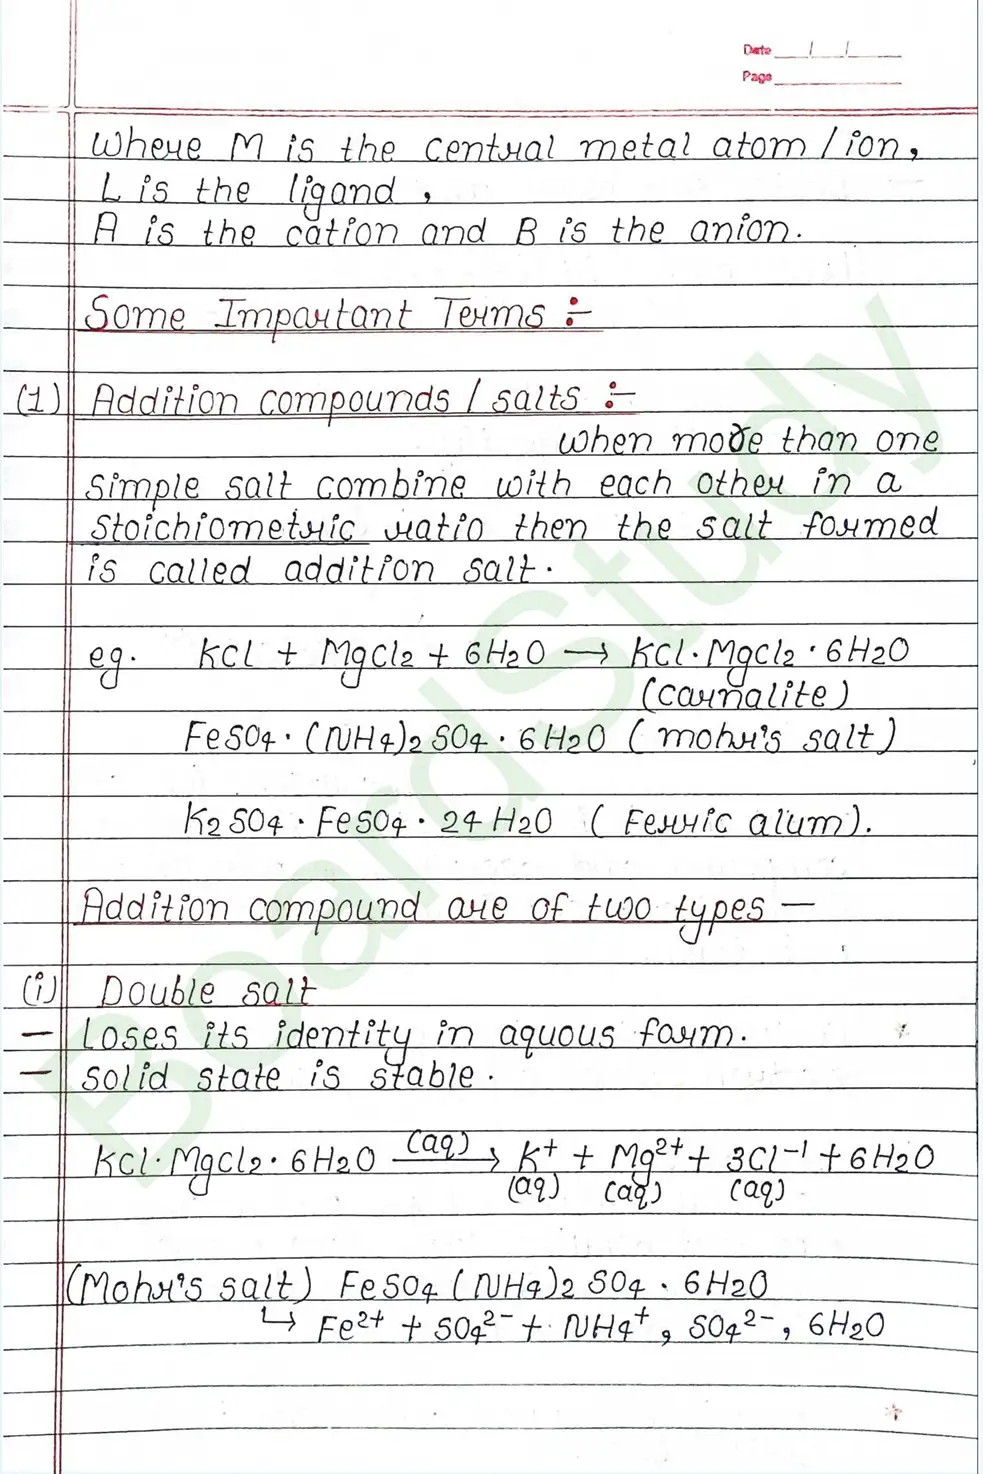 Date __/__/__
Page
Where M is the central metal atom / ion,
L is the ligand ,
A is the cation and B is the anion.
Some Important Terms :-
(1) Addition compounds / salts :-
When more than one
simple salt combine with each other in a
stoichiometric ratio then the salt formed
is called addition salt.
eg. KCl + MgCl2 + 6H2O → KCl·MgCl2·6H2O
(carnalite)
FeSO4·(NH4)2SO4·6H2O (mohr's salt)
K2SO4·FeSO4·24H2O (Ferric alum).
Addition compound are of two types —
(i) Double salt
— Loses its identity in aquous form.
— solid state is stable.
KCl·MgCl2·6H2O (aq)→ K+ + Mg2+ + 3Cl-1 + 6H2O
(aq) (aq) (aq)
(Mohr's salt) FeSO4(NH4)2SO4·6H2O
↳ Fe2+ + SO42- + NH4+, SO42-, 6H2O
BoardStudy